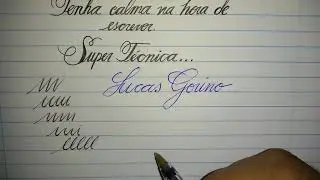 Tenha calma na hora de
escrever.
Super Técnica...
Lucas Gorino